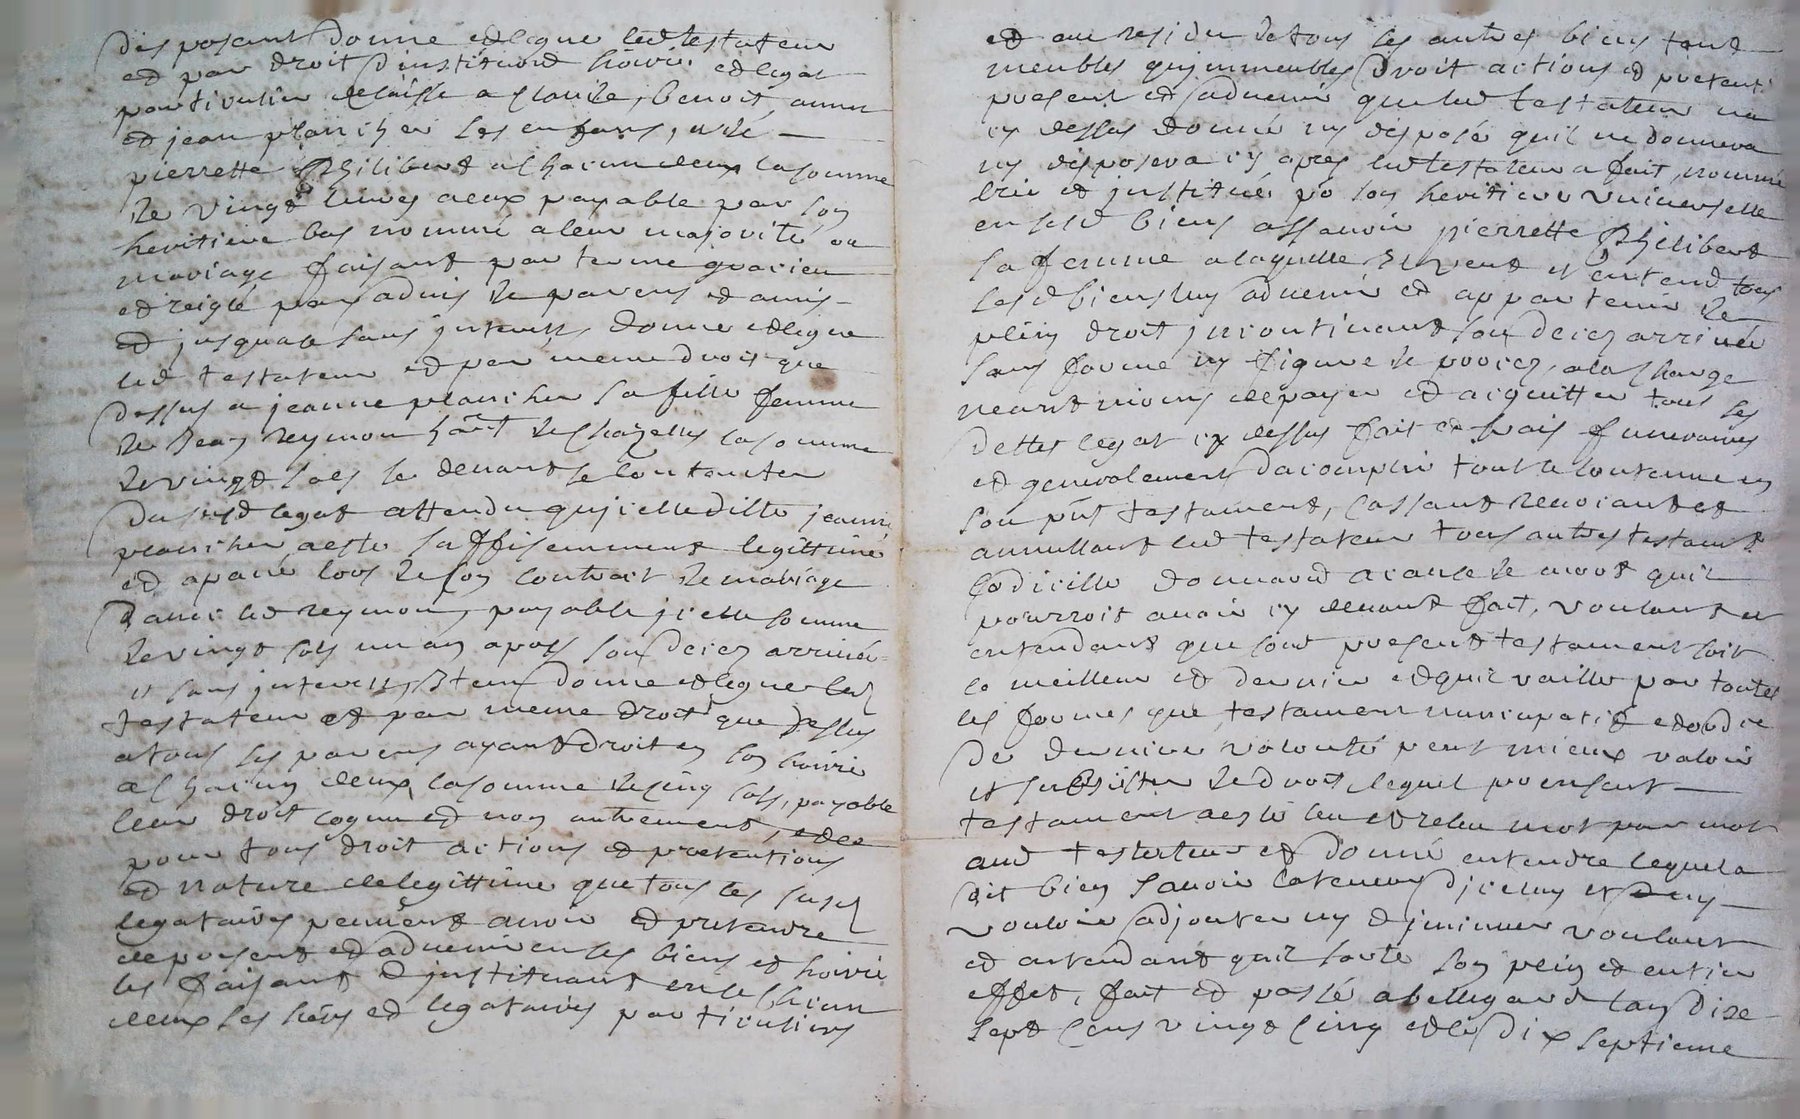 disposant donne et legue led testateur
et par droit dinstitution hoirie et legat
particulier delaisse a claude, benoit, anne
et jean plancher ses enfans, et de
pierrette Philibert a chacun deux la somme
de vingt livres a eux payable par son
heritiere bas nommé a leur majorité ou
mariage faisant par terme gracieu
et reiglé par advis de parens et amis
et jusqua ce sans jnterest, donne et legue
led testateur et par meme droit que
dessus a jeanne plancher sa fille femme
de Jean reymon hant de Chazelles la somme
de vingt sols se devant se contanter
dud legat attendu qujcelle ditte jeanne
plancher a esté suffisemment legittimé
et apané lors de son contract de mariage
avec led reymon, payable jcelle somme
de vingt sols un an apres son deces arrivée
et sans jnterest, Jtem donne et legue led
testateur et par meme droit que dessus
a tous ses parens ayant droit en son hoirie
a chacun deux la somme de cinq sols, payable
leur droit cognu et non autrement, et ce
pour tous droit actions et pretentions
et nature de legittime que tous les susd
legataires peuvent avoir et pretendre
de present et advenir en ses biens et hoirie
les faisant et jnstituant en ce chacun
deux ses hers et legataires particuliers
et au residu de tous les autres biens tant
meubles qujmmeubles droit actions et pretent
present et advenir que led testateur na
cy dessus donné ny disposé quil ne donnera
ny disposera cy apres led testateur a fait, nommé
créé et jnstitué po son heritiere universelle
en sesd biens assavoir pierrette Philibert
sa femme a laquelle il veut et entend tous
sesd biens luy advenir et appartenir de
plein droit jncontinant son deces arrivée
sans forme ny figure de proces, a la charge
neantmoins de payer et acquitter tous ses
dettes legat cy dessus fait et frais funeraires
et generalement dacomplir tout le contenu en
son pnt testament, cassant revocant et
annullant led testateur tous autres testamt
codicille donnaon a cause de mort quil
pourroit avoir cy devant fait, voulant et
entendant que son present testament soit
le meilleur et dernier et quil vaille par toutes
les formes que testament nuncupatif et ordre
de derniere volonté peut mieux valoir
et subsister de droit, lequel present
testament a esté leu et releu mot par mot
aud testateur et donné entendre lequel a
dit bien savoir la teneur djceluy et ny
vouloir adjouter ny djminuer voulant
et entendant quil sorte son plein et entier
effet, fait et passé a bellegarde lan dixe
sept cens vingt cinq et le dix septieme